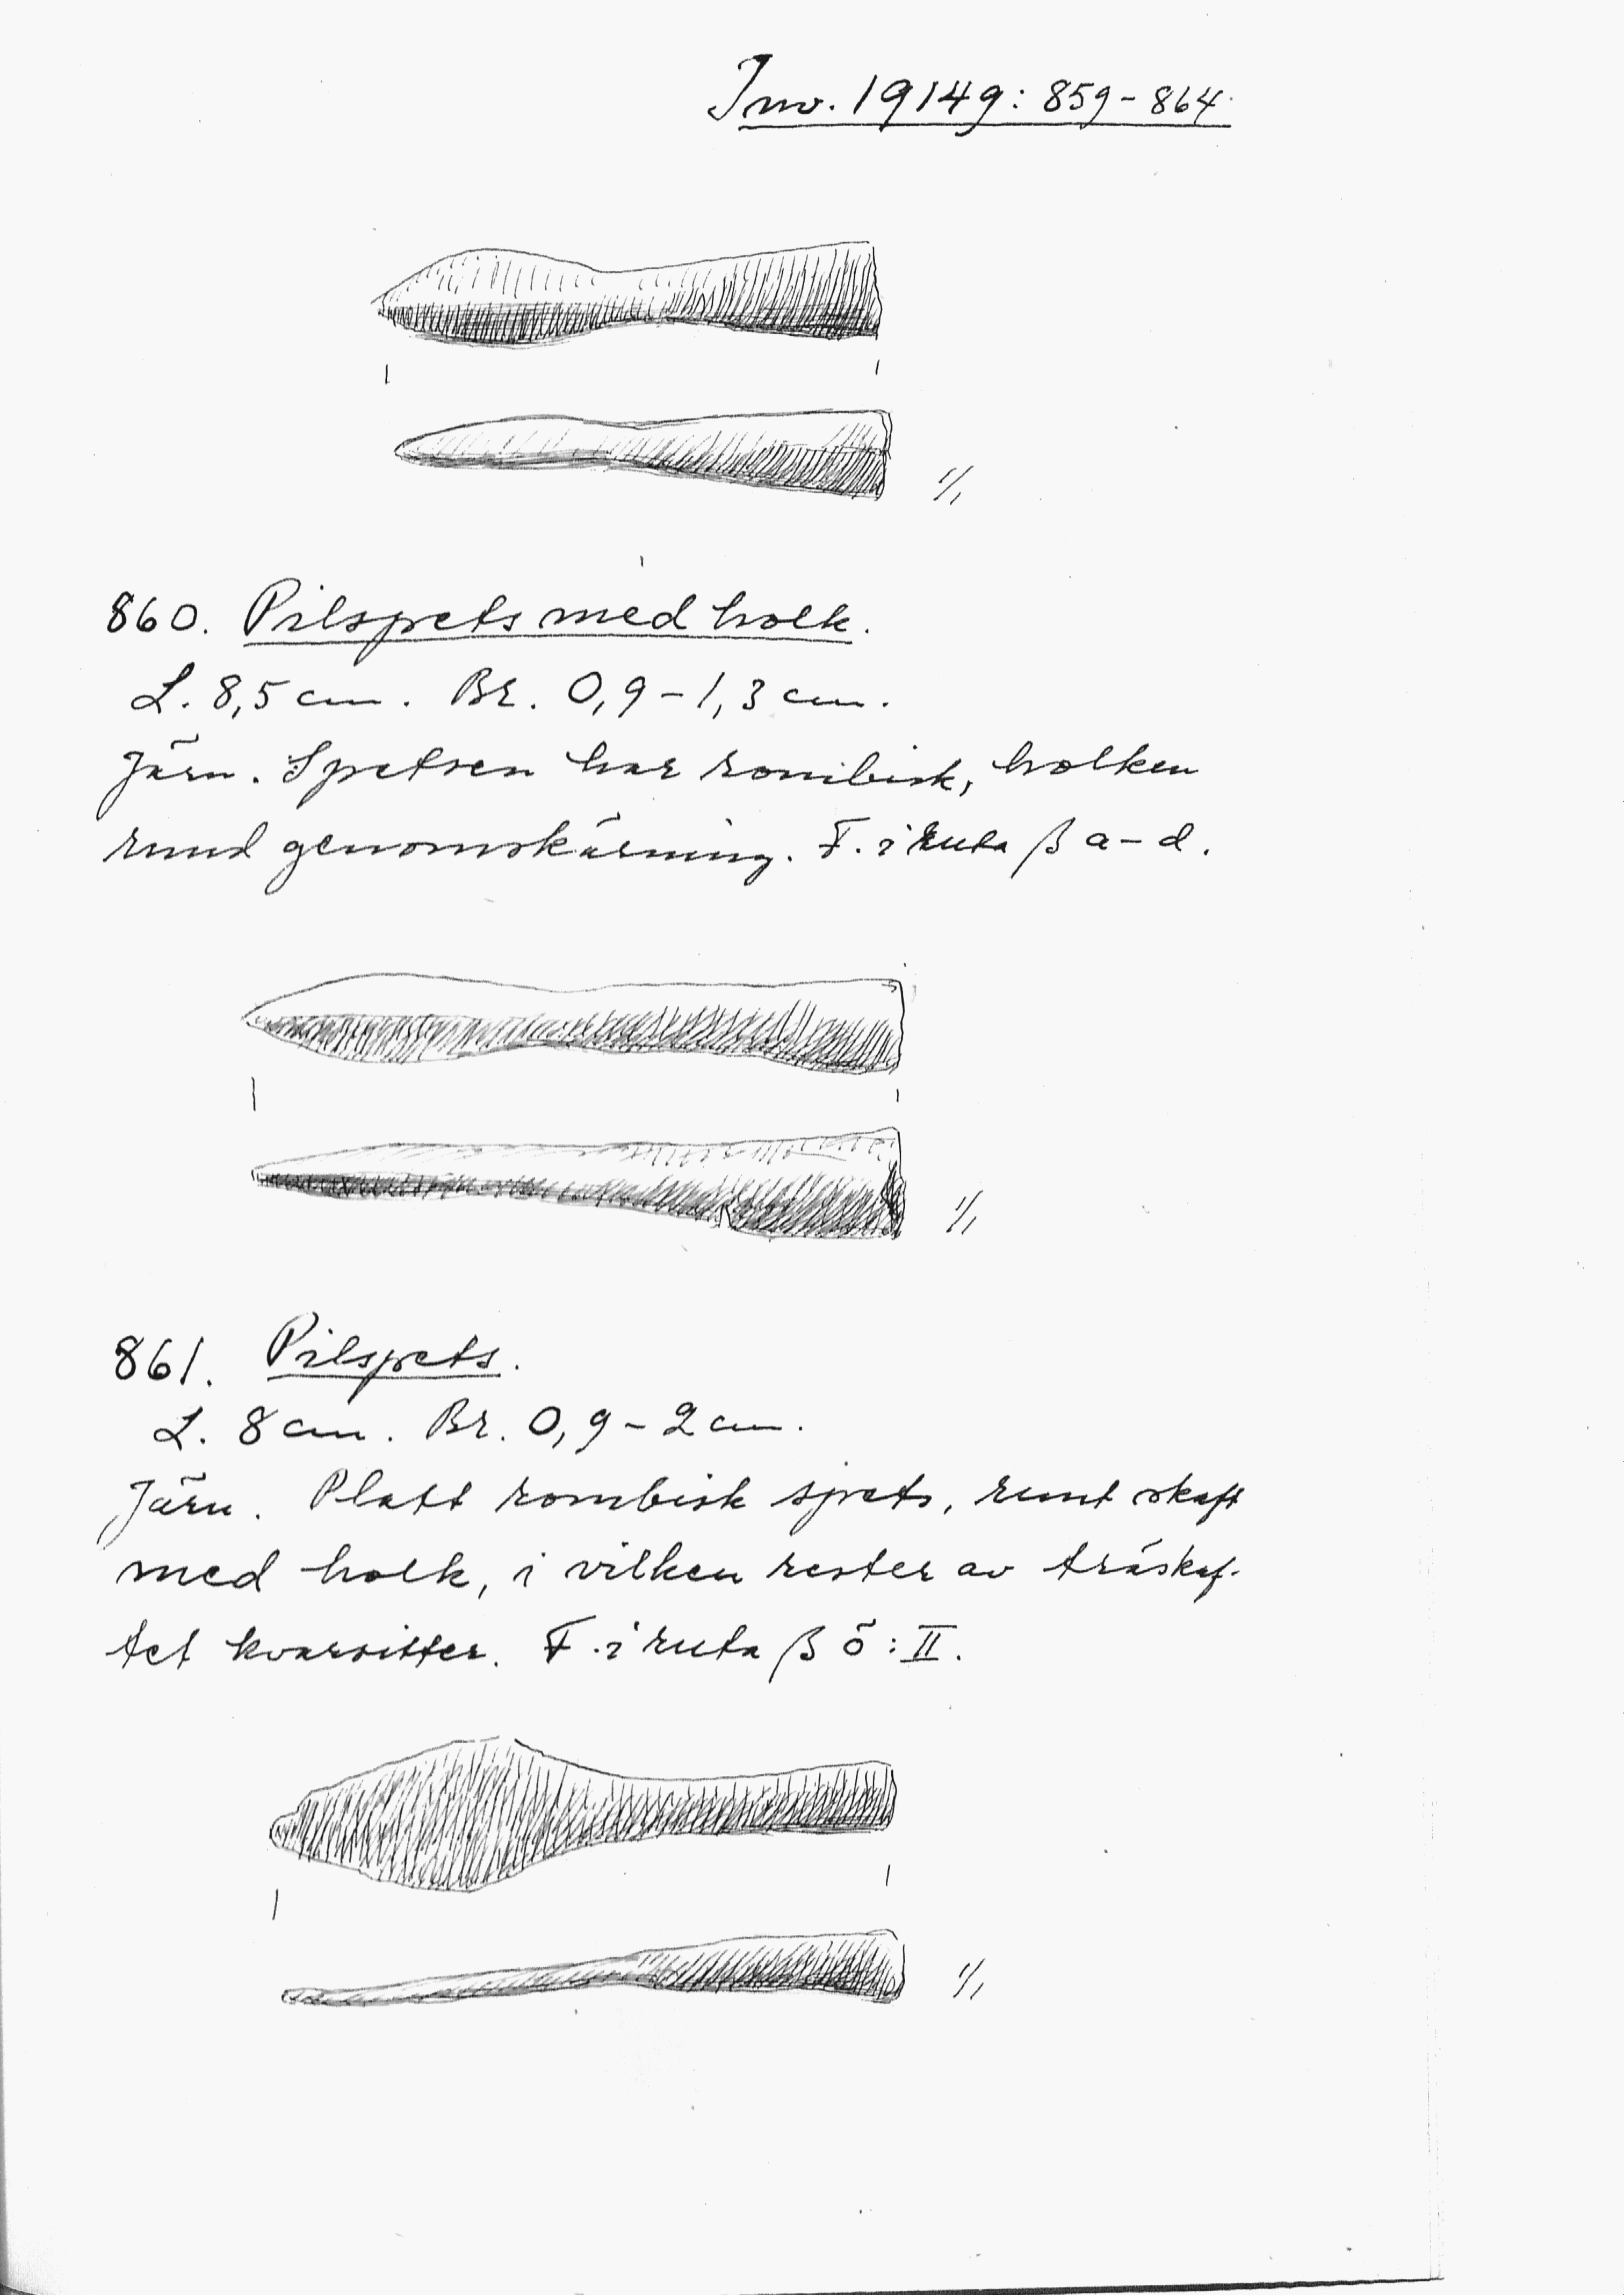 Inv. 19149: 859-864.
1/1
860. Pilspets med holk.
L. 8,5 cm. Br. 0,9-1,3 cm.
Järn. Spetsen har rombisk, holken
rund genomskärning. F. i ruta β a-d.
1/1
861. Pilspets.
L. 8 cm. Br. 0,9-2 cm.
Järn. Platt rombisk spets, runt skaft
med holk, i vilken rester av träskaf-
tet kvarsitter. F. i ruta β ö: II.
1/1